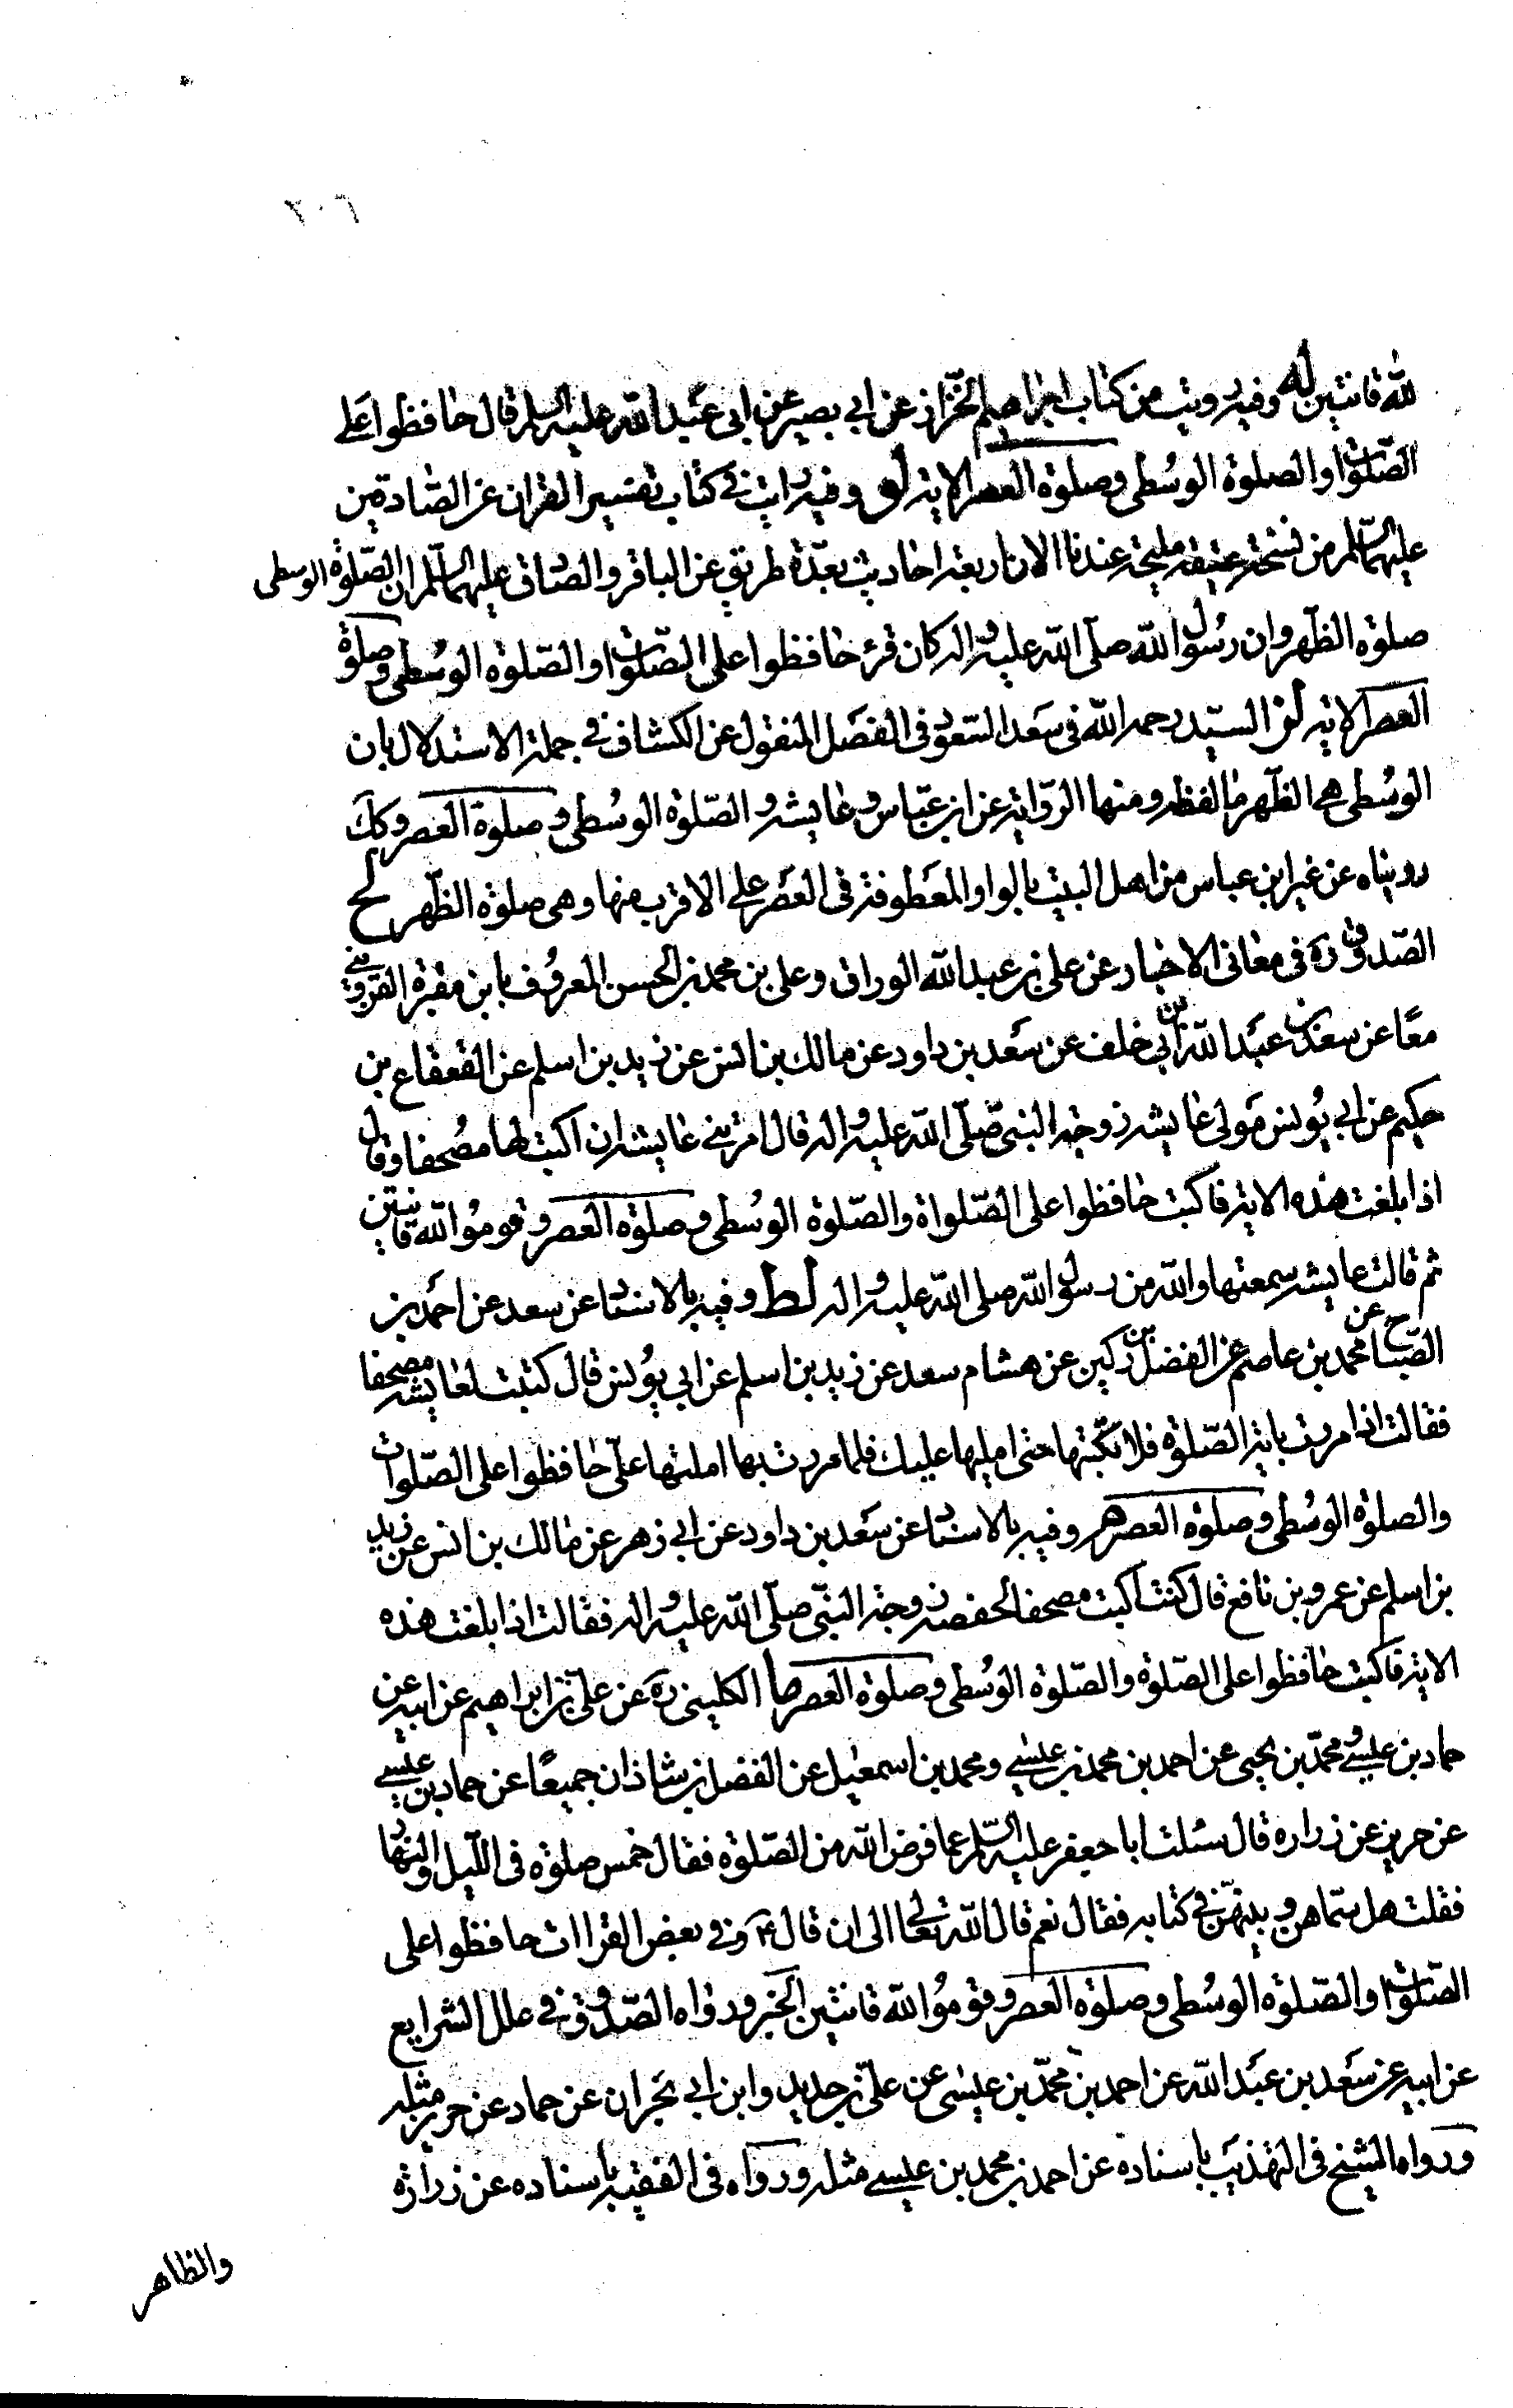 ٢٠٦
لله قانتين له وفيه رويت من كتاب ابراهيم الخزاز عن ابي بصير عن ابى عبد الله عليه السلم قال حافظوا على
الصلوات والصلوة الوسطى وصلوة العصر الاية لو وفيه رايت فى كتاب تفسير القران عن الصادقين
عليهما السلم من نسخة عتيقة مليحة عندنا الان اربعة احاديث بعدة طريق عن الباقر والصادق عليهما السلم ان الصلوة الوسطى
صلوة الظهر وان رسول الله صلى الله عليه واله كان قرء حافظوا على الصلوات والصلوة الوسطى وصلوة
العصر الاية لز السيد رحمه الله فى سعد السعود فى الفصل المنقول عن الكشاف في جملة الاستدلال بان
الوسطى هى الظهر ما لفظه ومنها الرواية عن ابن عباس وعايشه و الصلوة الوسطى و صلوة العصر وكك
رويناه عن غير ابن عباس من اهل البيت بالواو المعطوفة فى العصر على الاقرب منها وهى صلوة الظهر لح
الصدوق ره فى معانى الاخبار عن على بن عبد الله الوراق وعلى بن محمد بن الحسن المعروف بابن مقبرة القزوينى
معًا عن سعد بن عبد الله بن ابي خلف عن سعد بن داود عن مالك بن انس عن زيد بن اسلم عن القعقاع بن
حكيم عن ابي يونس مولى عايشه زوجة النبى صلى الله عليه واله قال امرتنى عايشه ان اكتب لها مصحفا وقال
اذا بلغت هذه الاية فاكتب حافظوا على الصلواة والصلوة الوسطى وصلوة العصر وقوموا لله قانتين
ثم قالت عايشه سمعتها والله من رسول الله صلى الله عليه واله لط وفيه بالاسناد عن سعد عن احمد بن
الصباح عن محمد بن عاصم عن الفضل بن ركين عن هشام سعد عن زيد بن اسلم عن ابي يونس قال كتبت لعايشه مصحفا
فقالت اذا مررت باية الصلوة فلا تكتبها حتى امليها عليك فلما مررت بها املتها على حافظوا على الصلوات
والصلوة الوسطى وصلوة العصر هر وفيه بالاسناد عن سعد بن داود عن ابي زهر عن مالك بن انس عن زيد
بن اسلم عن عمرو بن نافع قال كنت اكتب مصحفا لحفصه زوجة النبى صلى الله عليه واله فقالت اذا بلغت هذه
الاية فاكتب حافظوا على الصلوة والصلوة الوسطى وصلوة العصر ما الكلينى ره عن على بن ابراهيم عن ابيه عن
حماد بن عيسى و محمد بن يحيى عن احمد بن محمد بن عيسى ومحمد بن اسمعيل عن الفضل بن شاذان جميعًا عن حماد بن عيسى
عن حريز عن زراره قال سئلت ابا جعفر عليه السلم عما فرض الله من الصلوة فقال خمس صلوة فى الليل والنهار
فقلت هل سماهن و بينهن فى كتابه فقال نعم قال الله تعالى الى ان قال ع وفى بعض القراات حافظوا على
الصلوات والصلوة الوسطى وصلوة العصر وقوموا لله قانتين الخبر ورواه الصدوق فى علل الشرايع
عن ابيه عن سعد بن عبد الله عن احمد بن محمد بن عيسى عن على بن حديد وابن ابي نجران عن حماد عن حريز مثله
ورواه الشيخ فى التهذيب باسناده عن احمد بن محمد بن عيسى مثله ورواه فى الفقيه باسناده عن زرارة
والظاهر